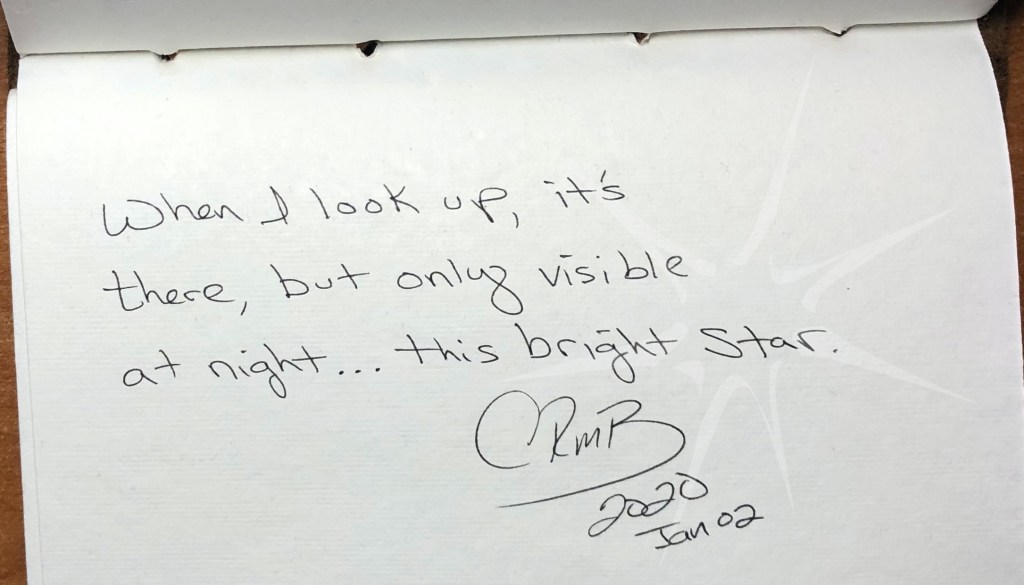 When I look up, it's
there, but only visible
at night... this bright Star.
CRMB
2020
Jan 02